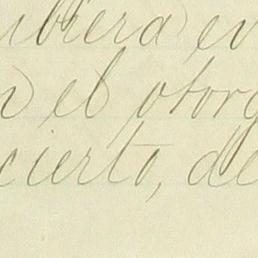 ubiera en
n el otorg
cierto, de